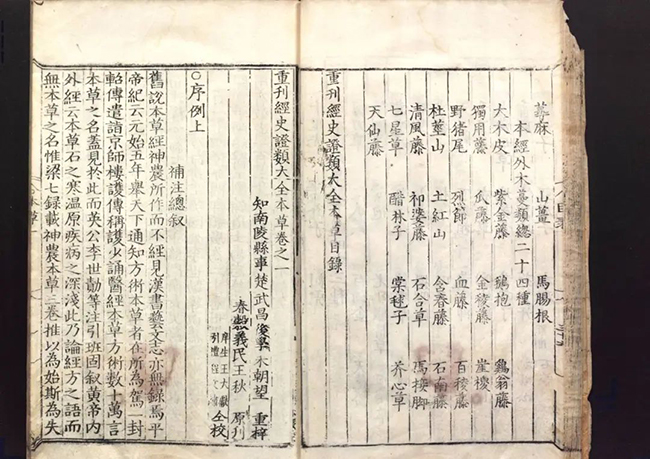 蕁麻 山薑 馬腸根
本經外木蔓類總二十四種
大木皮 紫金藤 鵝抱 鷄翁藤
獨用藤 瓜藤 金稜藤 崖椶
野猪尾 烈節 血藤 百稜藤
杜莖山 土紅山 含春藤 石南藤
清風藤 祁婆藤 石合草 馬接脚
七星草 醋林子 棠毬子 芥心草
天仙藤
重刊經史證類大全本草目錄
重刊經史證類大全本草卷之一
知南陵縣事楚武昌後學朱朝望 重梓
春穀義民王秋 原刊
庠生王大獻
引禮程文繡 仝校
○序例上
補注總叙
舊說本草經神農所作而不經見漢書藝文志亦無錄焉平
帝紀云元始五年舉天下通知方術本草者在所為駕一封
軺傳遣詣京師樓護傳稱護少誦醫經本草方術數十萬言
本草之名蓋見於此而英公李世勣等注引班固叙黃帝內
外經云本草石之寒温原疾病之深淺此乃論經方之語而
無本草之名惟梁七録載神農本草三卷推以為始斯為失